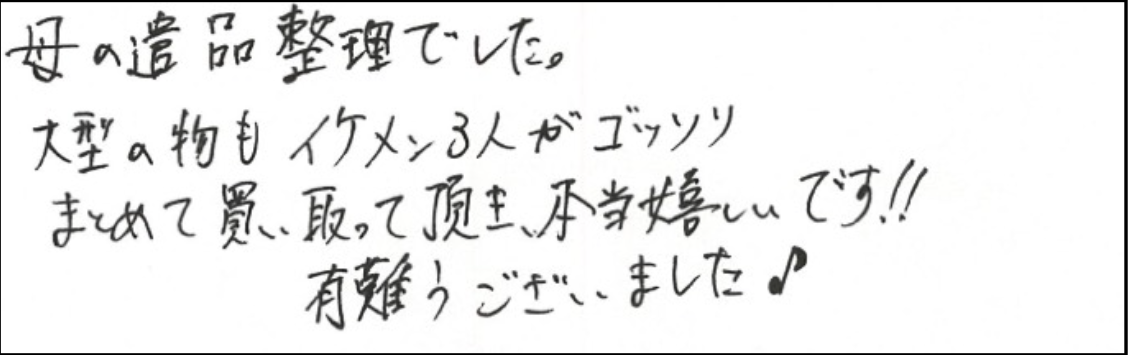 母の遺品整理でした。
大型の物もイケメン3人がゴッソリ
まとめて買い取って頂き、本当嬉しいです!!
有難うございました♪